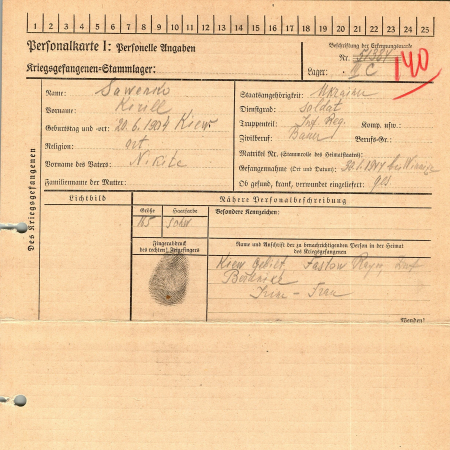 1 2 3 4 5 6 7 8 9 10 11 12 13 14 15 16 17 18 19 20 21 22 23 24 25
Personalkarte I: Personelle Angaben
Kriegsgefangenen-Stammlager:
Beschriftung der Erkennungsmarke
Nr. 51984
Lager:
140
Des Kriegsgefangenen
Name: Sawenko
Vorname: Kirill
Geburtstag und -ort: 20.6.1904 Kiew
Religion: ort
Vorname des Vaters: Nikita
Familienname der Mutter:
Staatsangehörigkeit: Ukrainer
Dienstgrad: Soldat
Truppenteil: Inf. Reg. Komp. usw.:
Zivilberuf: Bauer Berufs-Gr.:
Matrikel Nr. (Stammrolle des Heimatstaates):
Gefangennahme (Ort und Datum):
Ob gesund, krank, verwundet eingeliefert: ges
Lichtbild
Nähere Personalbeschreibung
Größe
Haarfarbe
Besondere Kennzeichen:
165
Fingerabdruck
des rechten Zeigefingers
Name und Anschrift der zu benachrichtigenden Person in der Heimat
des Kriegsgefangenen
Kiew Gebiet Fastow Rayon Dorf
Frau
Wenden!